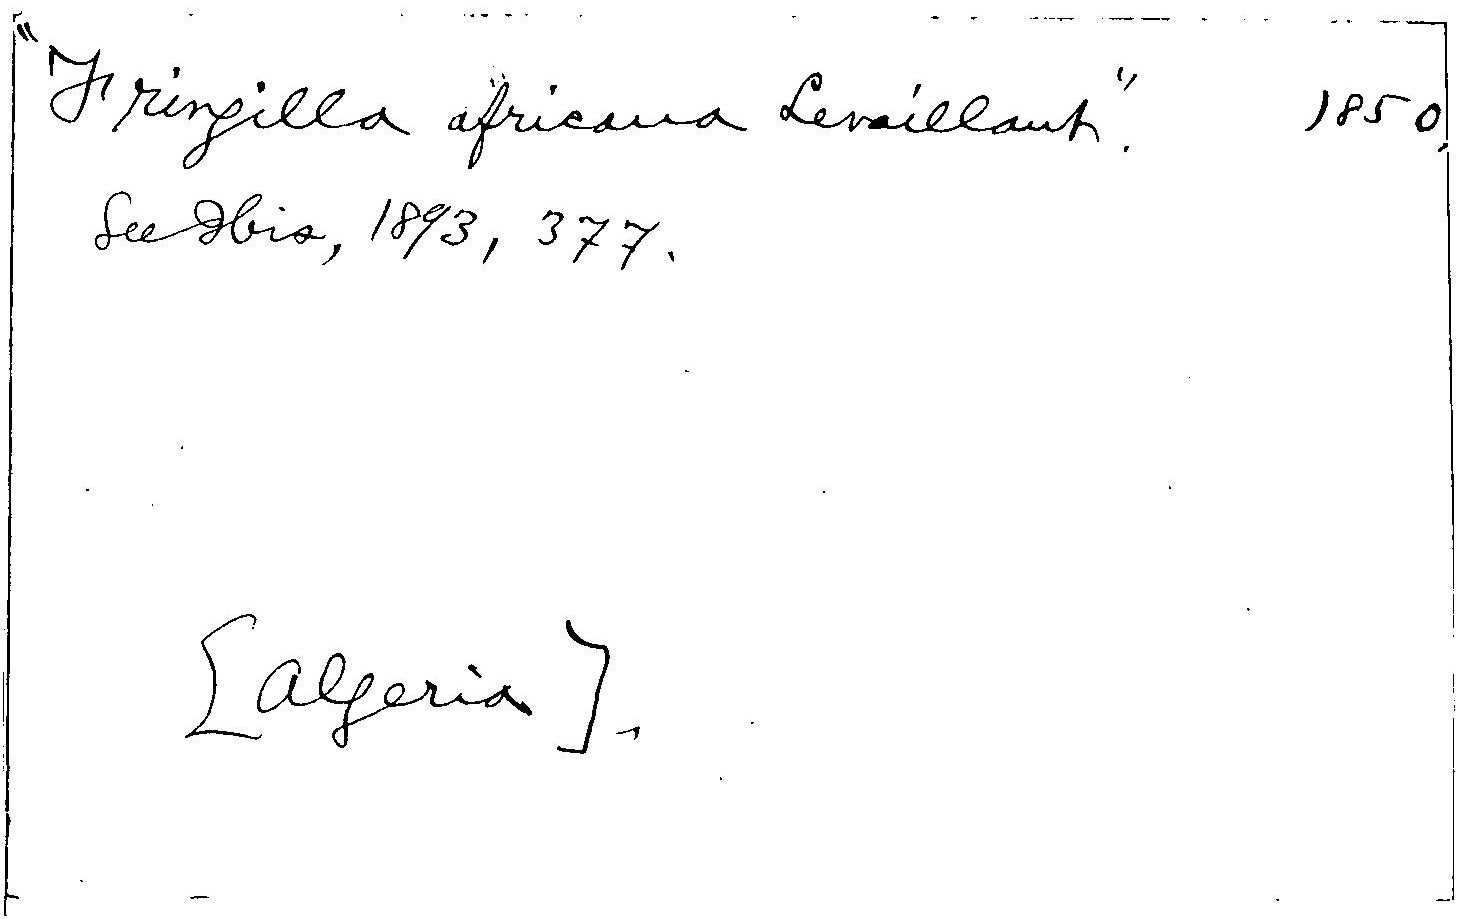 "Fringilla africana Levaillant". 1850,
See Ibis, 1893, 377.
[Algeria].